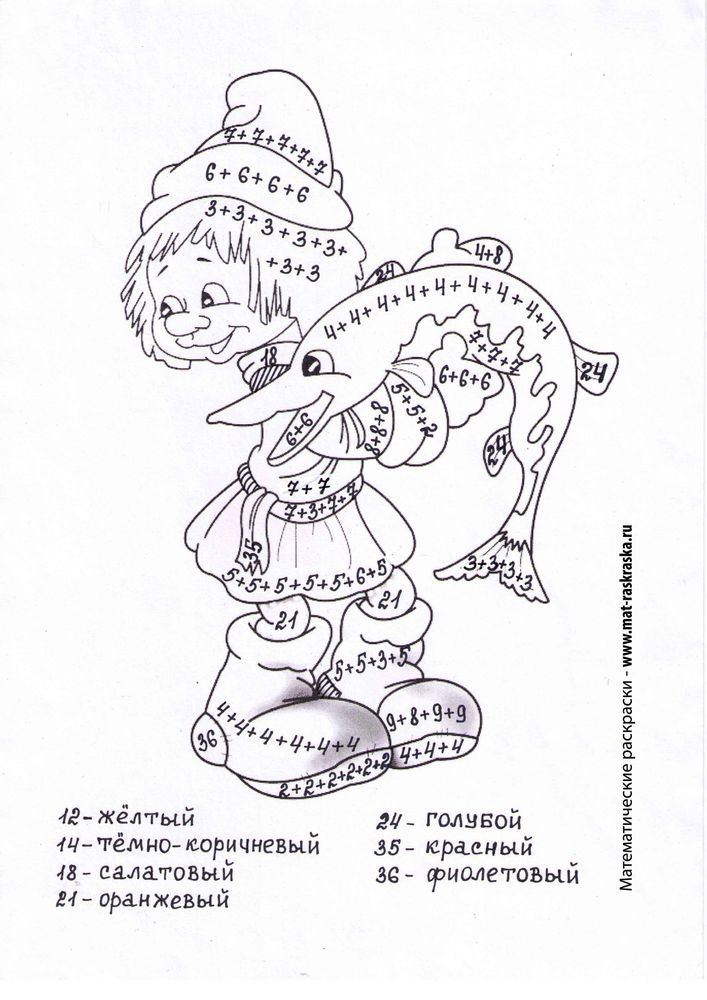 7+7+7+7+7
6+6+6+6
3+3+3+3+3+
+3+3
4+8
24
4+4+4+4+4+4+4+4+4
18
7+7+7
24
6+6+6
5+5+2
8+8+8
6+6
24
7+7
7+3+7+7
35
3+3+3+3
5+5+5+5+5+6+5
21
21
5+5+3+5
4+4+4+4+4+4
9+8+9+9
36
4+4+4
2+2+2+2+2+2
12-жёлтый
14-тёмно-коричневый
18-салатовый
21-оранжевый
24- голубой
35- красный
36- фиолетовый
Математические раскраски - www.mat-raskraska.ru